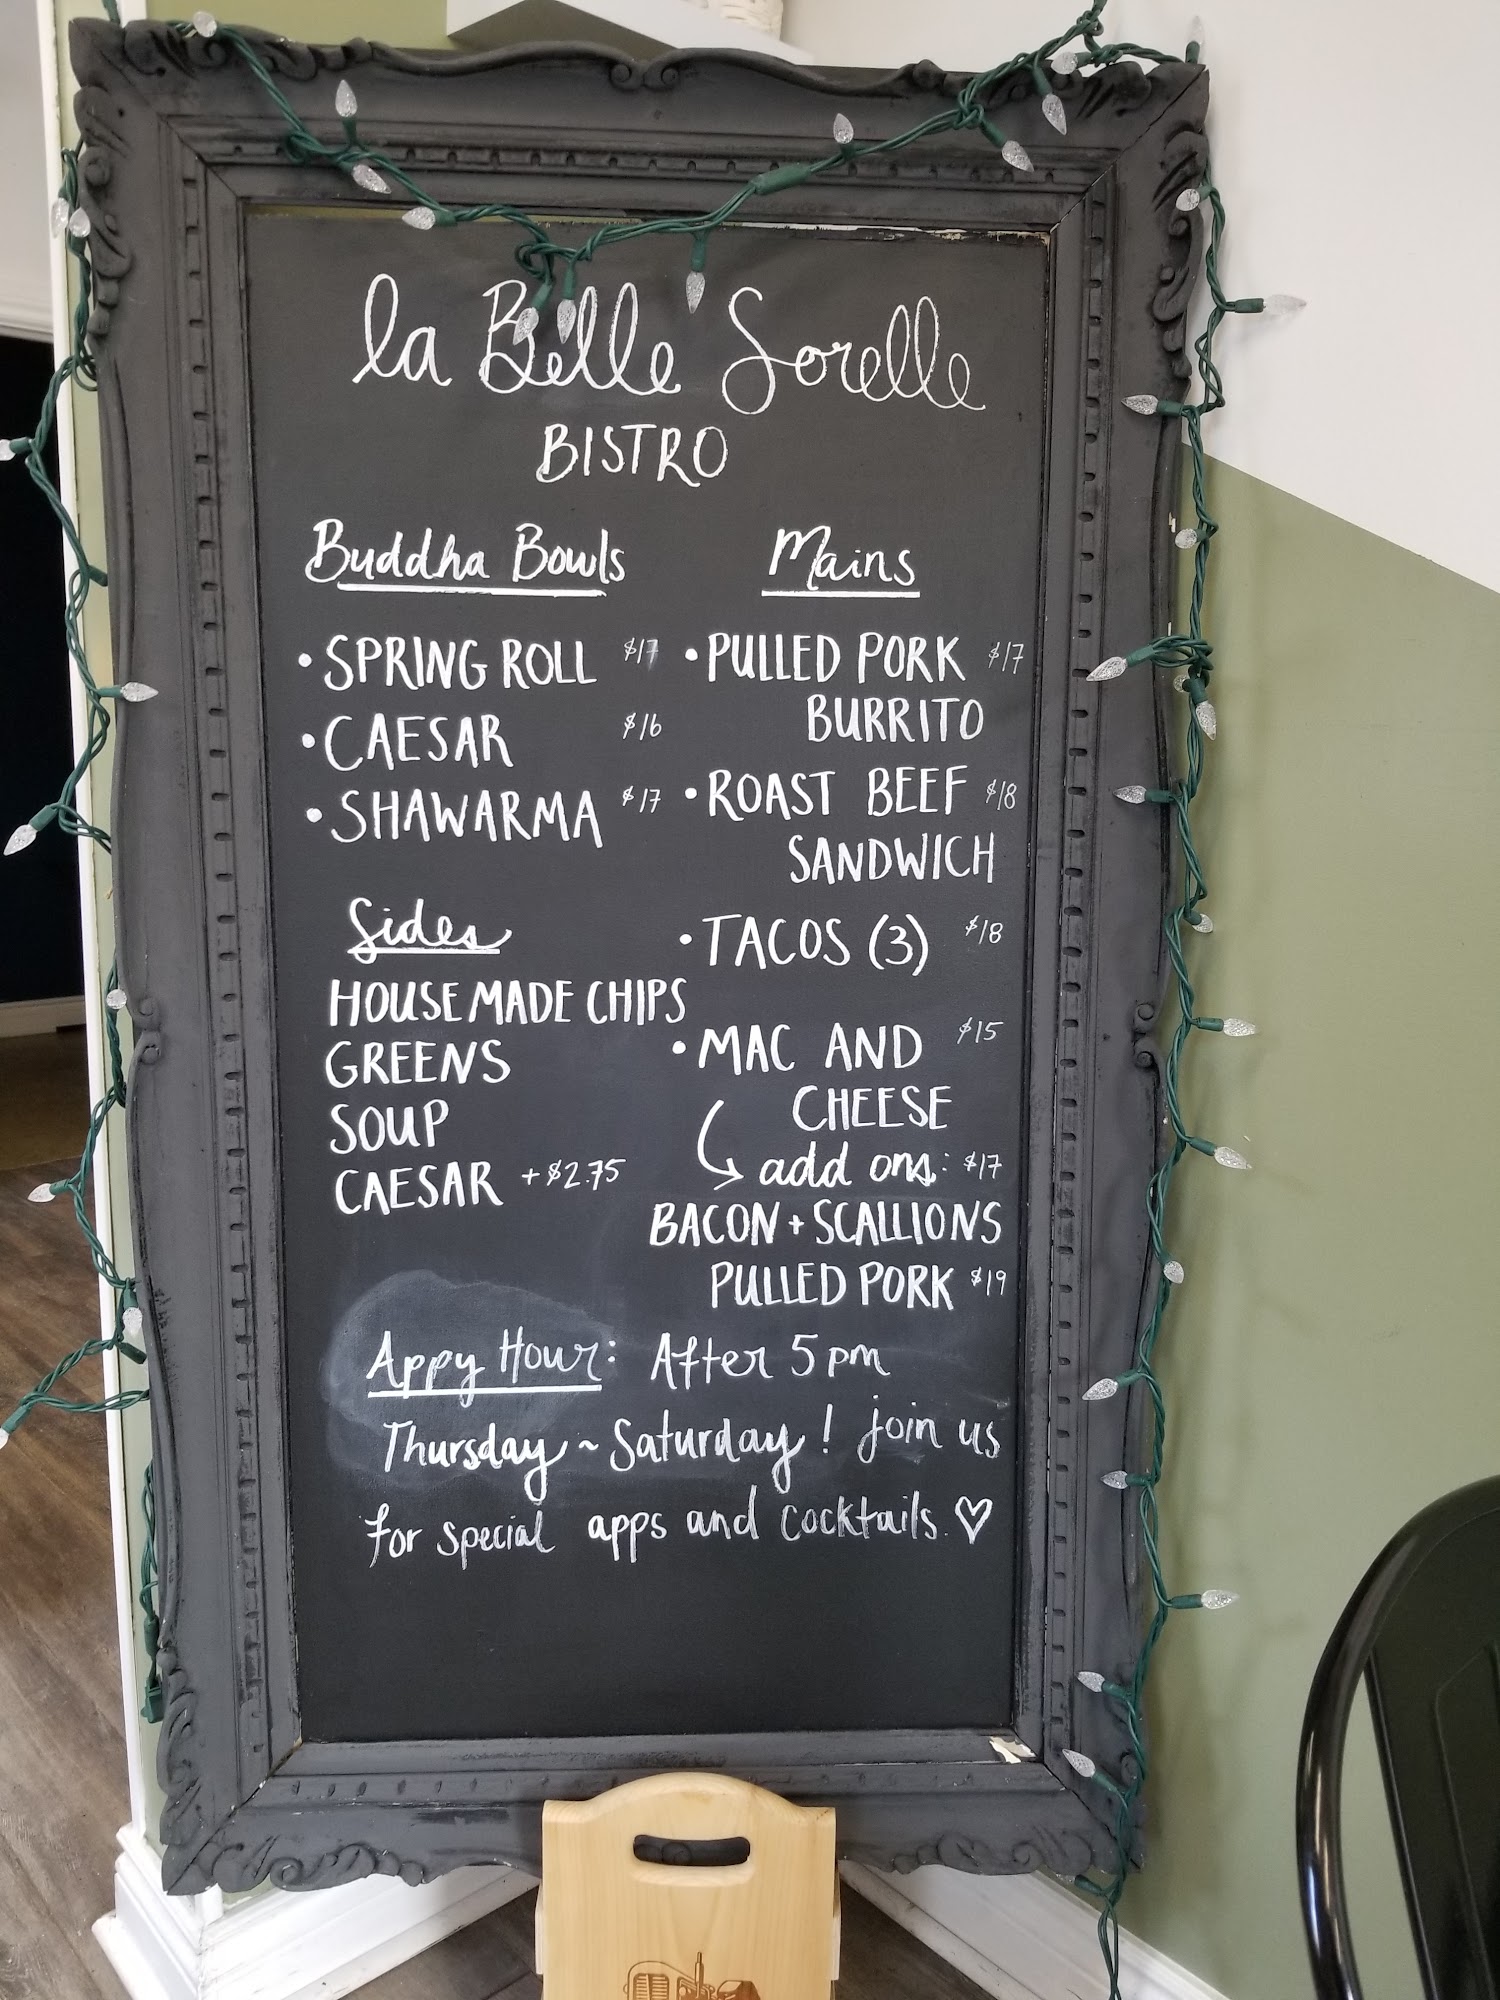 la Belle Sorelle
BISTRO
Buddha Bowls
• SPRING ROLL $17
• CAESAR $16
• SHAWARMA $17
Sides
HOUSEMADE CHIPS
GREENS
SOUP
CAESAR +$2.75
Mains
• PULLED PORK $17
BURRITO
• ROAST BEEF $18
SANDWICH
• TACOS (3) $18
• MAC AND $15
CHEESE
add ons: $17
BACON + SCALLIONS
PULLED PORK $19
Appy Hour: After 5pm
Thursday ~ Saturday! join us
for special apps and cocktails. ♡